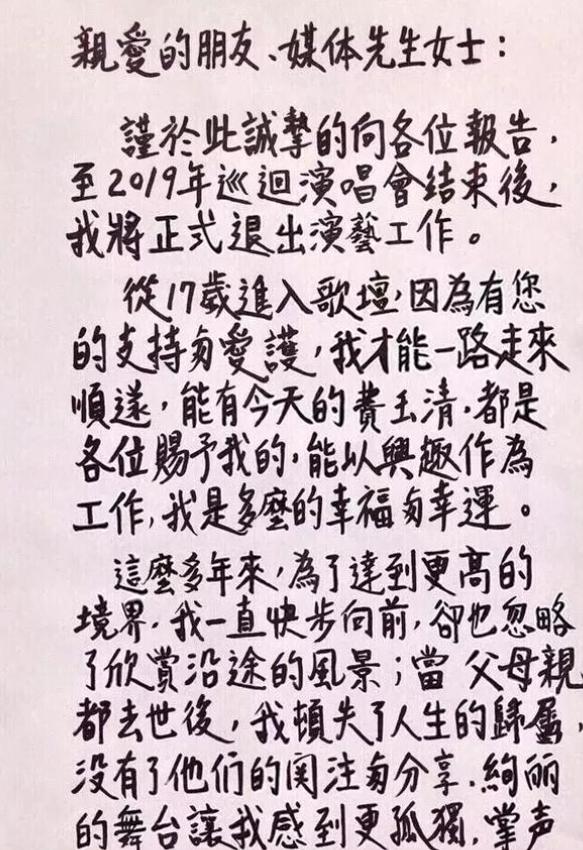 親愛的朋友、媒体先生女士：
謹於此誠摯的向各位報告，
至2019年巡迴演唱會结束後，
我將正式退出演藝工作。
從17歲進入歌壇，因為有您
的支持与愛護，我才能一路走來
順遂，能有今天的費玉清，都是
各位賜予我的，能以興趣作為
工作，我是多麼的幸福与幸運。
這麼多年來，為了達到更高的
境界，我一直快步向前，卻也忽略
了欣賞沿途的風景；當父母親
都去世後，我頓失了人生的歸屬，
没有了他们的関注与分享，絢丽
的舞台讓我感到更孤獨，掌声